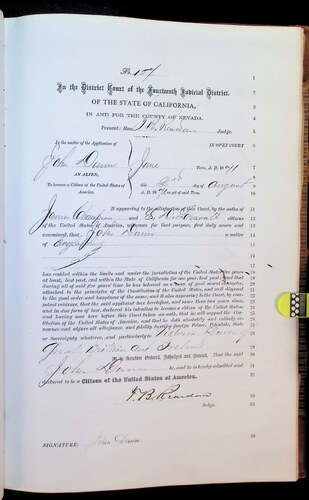 No. 127
In the District Court of the Fourteenth Judicial District.
OF THE STATE OF CALIFORNIA,
IN AND FOR THE COUNTY OF NEVADA.
Present: Hon. T. B. Reardan Judge.
In the matter of the Application of
IN OPEN COURT
John Dunn
June Term, A. D. 18
AN ALIEN,
To become a Citizen of the United States of America.
this 2nd day of August
A. D. 18 day of said Term.
It appearing to the satisfaction of this Court, by the oaths of
James and citizens
of the United States of America, witnesses for that purpose, first duly sworn and
examined, that John Dunn a native
of England
has resided within the limits and under the jurisdiction of the United States five years
at least, last past, and within the State of California for one year last past; and that
during all of said five years' time he has behaved as a man of good moral character,
attached to the principles of the Constitution of the United States, and well disposed
to the good order and happiness of the same; and it also appearing to the Court, by com-
petent evidence, that the said applicant has heretofore, and more than two years since,
and in due form of law, declared his intention to become a citizen of the United States,
and having now here before this Court taken an oath, that he will support the Con-
stitution of the United States of America, and that he doth absolutely and entirely re-
nounce and abjure all allegiance and fidelity to every foreign Prince, Potentate, State
or Sovereignty whatever, and particularly to Victoria Queen of
Great Britain and Ireland
It is therefore Ordered, Adjudged and Decreed, that the said
John Dunn be, and he is hereby admitted and
declared to be a Citizen of the United States of America.
T. B. Reardan
Judge.
SIGNATURE: John Dunn